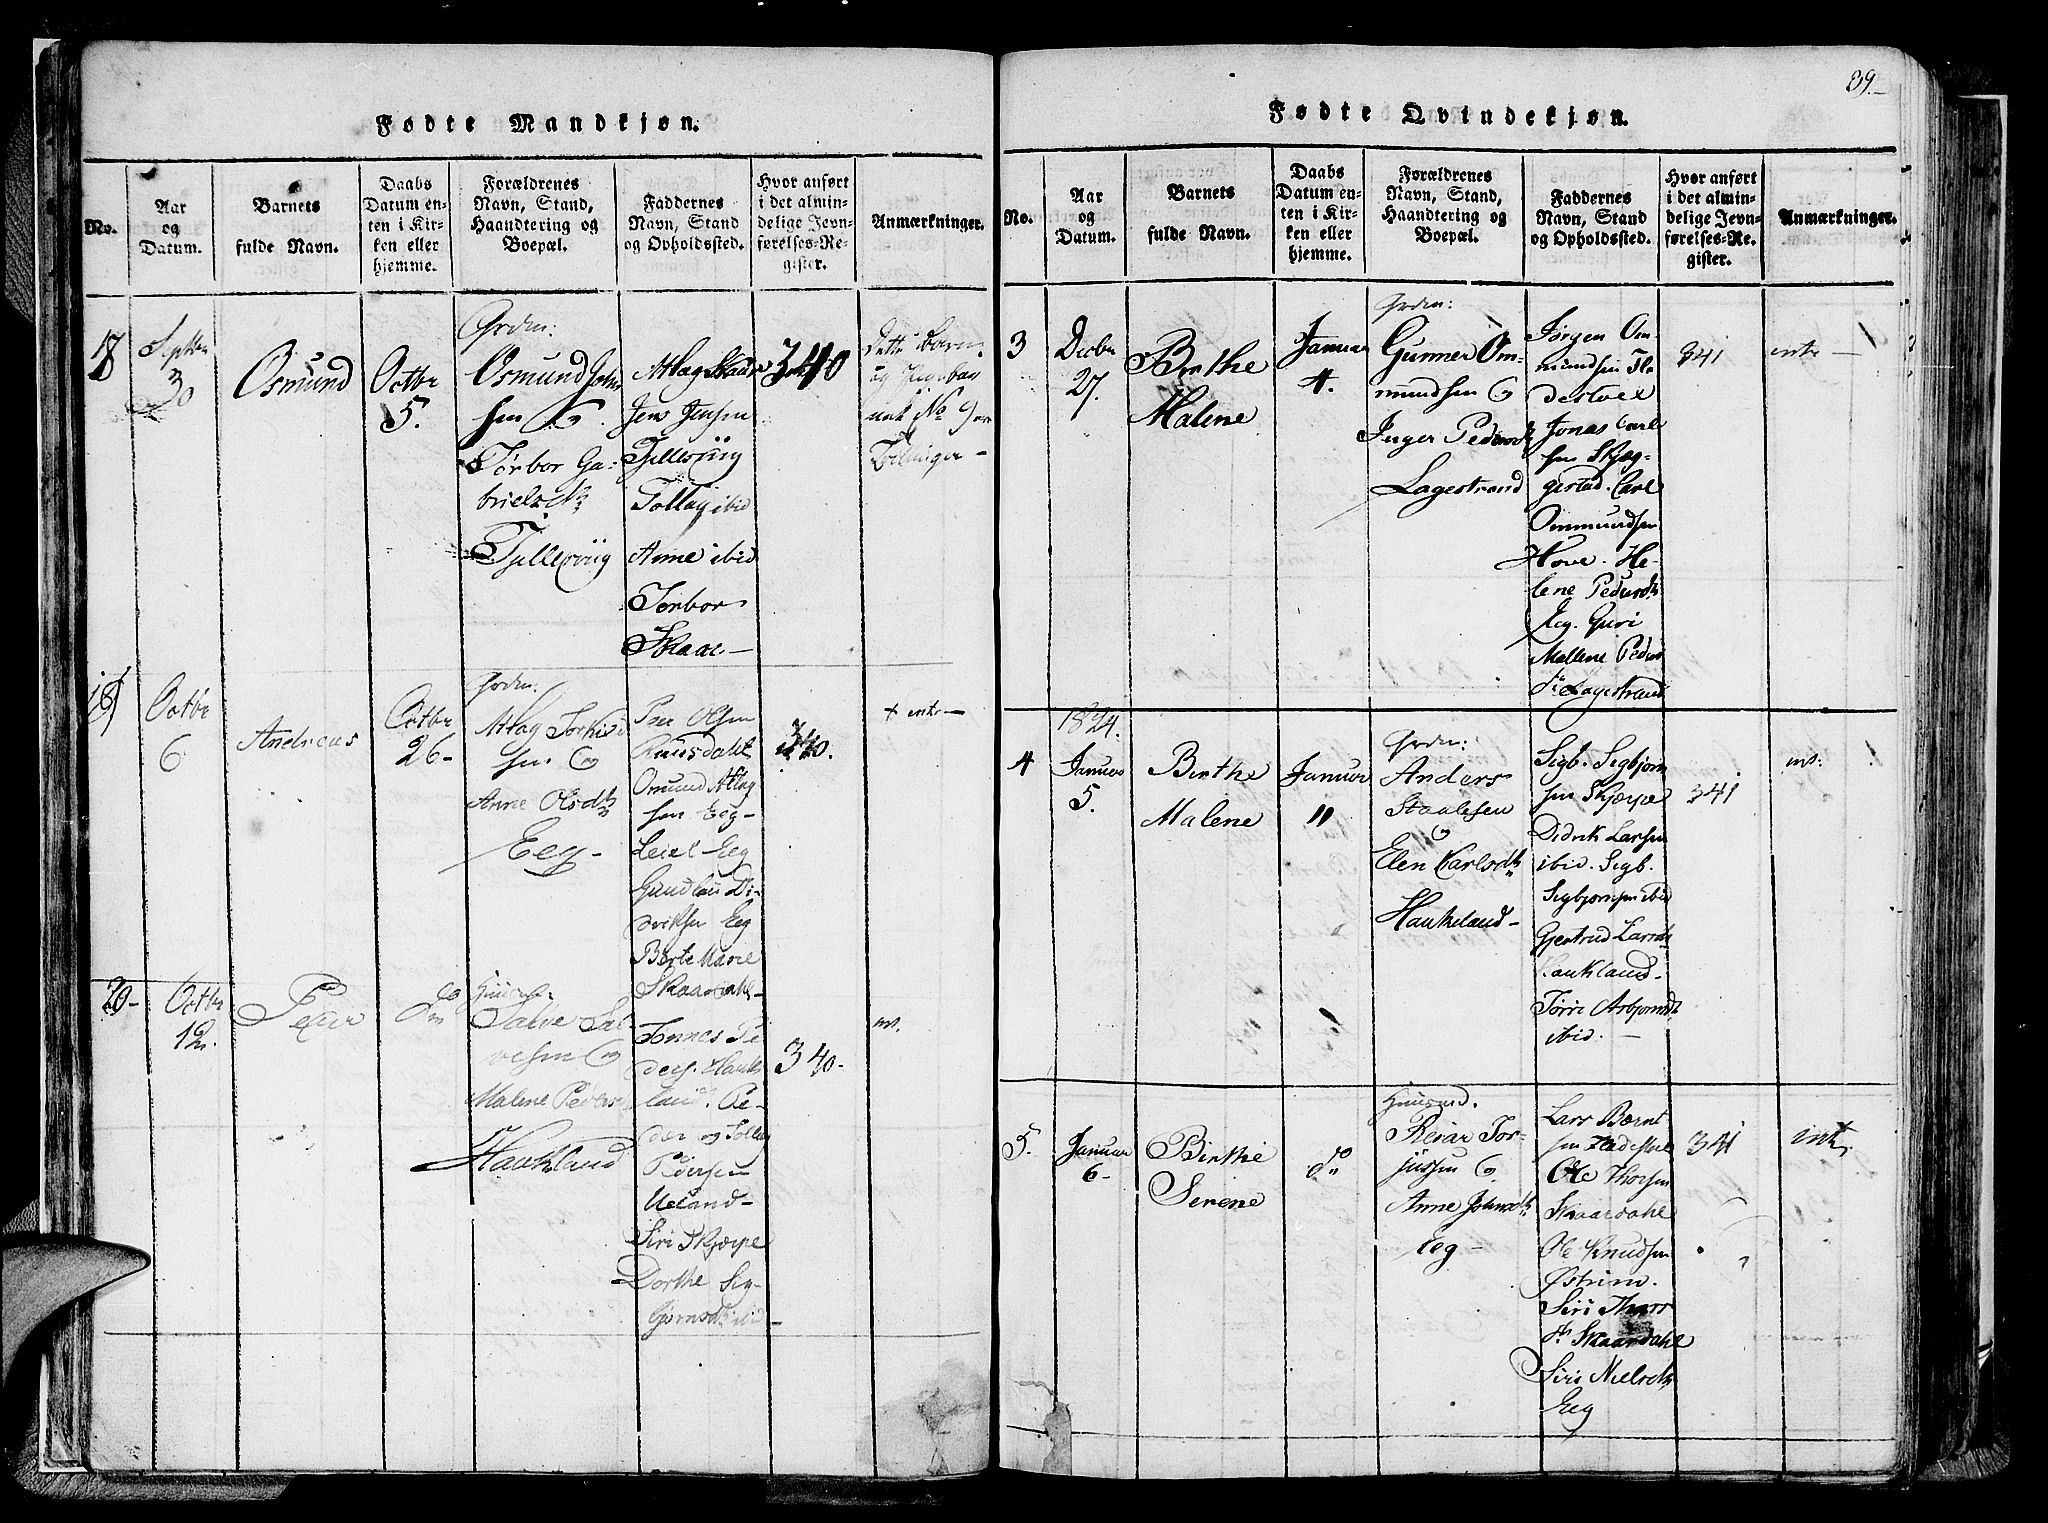 Fødte Mandkjøn.
No.
Aar
og
Datum.
Barnets
fulde Navn.
Daabs
Datum en-
ten i Kir-
ken eller
hjemme.
Forældrenes
Navn, Stand,
Haandtering og
Boepæl.
Faddernes
Navn, Stand
og Opholdssted.
Hvor anført
i det almin-
delige Jevn-
førelses-Re-
gister.
Anmærkninger.
Septbr
30
Osmund
Octbr
5.
Grdm:
Osmund
sen &
Torbor Ga-
brielsdtr
Tjellesviig
Attlag Skaar
Jens Jensen
Tjellesviig
Tollag ibid
Anne ibid
Torbor
Skaar-
340
Dette Barn
og
No 9 er
Tvillinger-
Octbr
6
Andreas
Octbr
26-
Grdm:
Attlag Torkild
sen &
Anne Olsdtr
Eeg-
Peer Olsen
Ruusdahl
Omund Attlag
sen Eeg-
Leiel Eeg
Gundlau Di-
driksen Eeg
Berte Marie
Skaardahl-
340.
+ entr-
20-
Octbr
12.
Peder
do
Huusm:
Salve Sal-
vesen &
Malene Peders
Haukland
Tønnes Pe
ders. Hauk
land. Pe-
der og Tollag
Pedersen
Ueland-
Siri Skjerpe
Dorthe Sig-
bjørnsdtr ibid-
340-
89.-
Fødte Qvindekjøn.
No.
Aar
og
Datum.
Barnets
fulde Navn.
Daabs
Datum en-
ten i Kir-
ken eller
hjemme.
Forældrenes
Navn, Stand,
Haandtering og
Boepæl.
Faddernes
Navn, Stand
og Opholdssted.
Hvor anført
i det almin-
delige Jevn-
førelses-Re-
gister.
Anmærkninger.
3
Decbr
27.
Birthe
Malene
Januar
4.
Grdm:
Gunner Om-
mundsen &
Inger Pedersdtr
Lagestrand
Jørgen Om-
mundsen Flo
destvel
Jonas Carl
sen Skjæg-
gestad. Carl
Ommundsen
Hove. He-
lene Pedersdtr
Eeg. Guri
Mallene Peders
dtr Lagestrand
341
entr-
4
1824.
Januar
5.
Birthe
Malene
Januar
11
Grdm:
Anders
Staalesen
&
Elen Karlsdtr
Haukeland-
Sigb. Sigbjørn
sen Skjerpe
Didrik Larsen
ibid. Sigb.
Sigbjørnsen ibid
Gjertrud Larsdtr
Haukland-
Torri Asbjørnsdtr
ibid.-
341
5.
Januar
6-
Birthe
Serene
do
Huusmd.
Reiar Tor-
jussen &
Anne Johnsdtr
Eeg-
Lars Bærnt
sen
Ole Thorsen
Skaardahl
Ole Knudsen
Østrim.
Siri Thors
dtr Skaardahl
Siri Nielsdtr
Eeg
341
entr